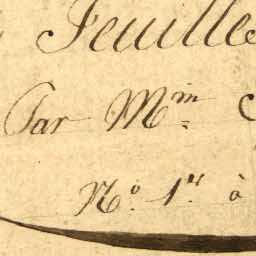 Feuille
Par Mm
No. 1er à